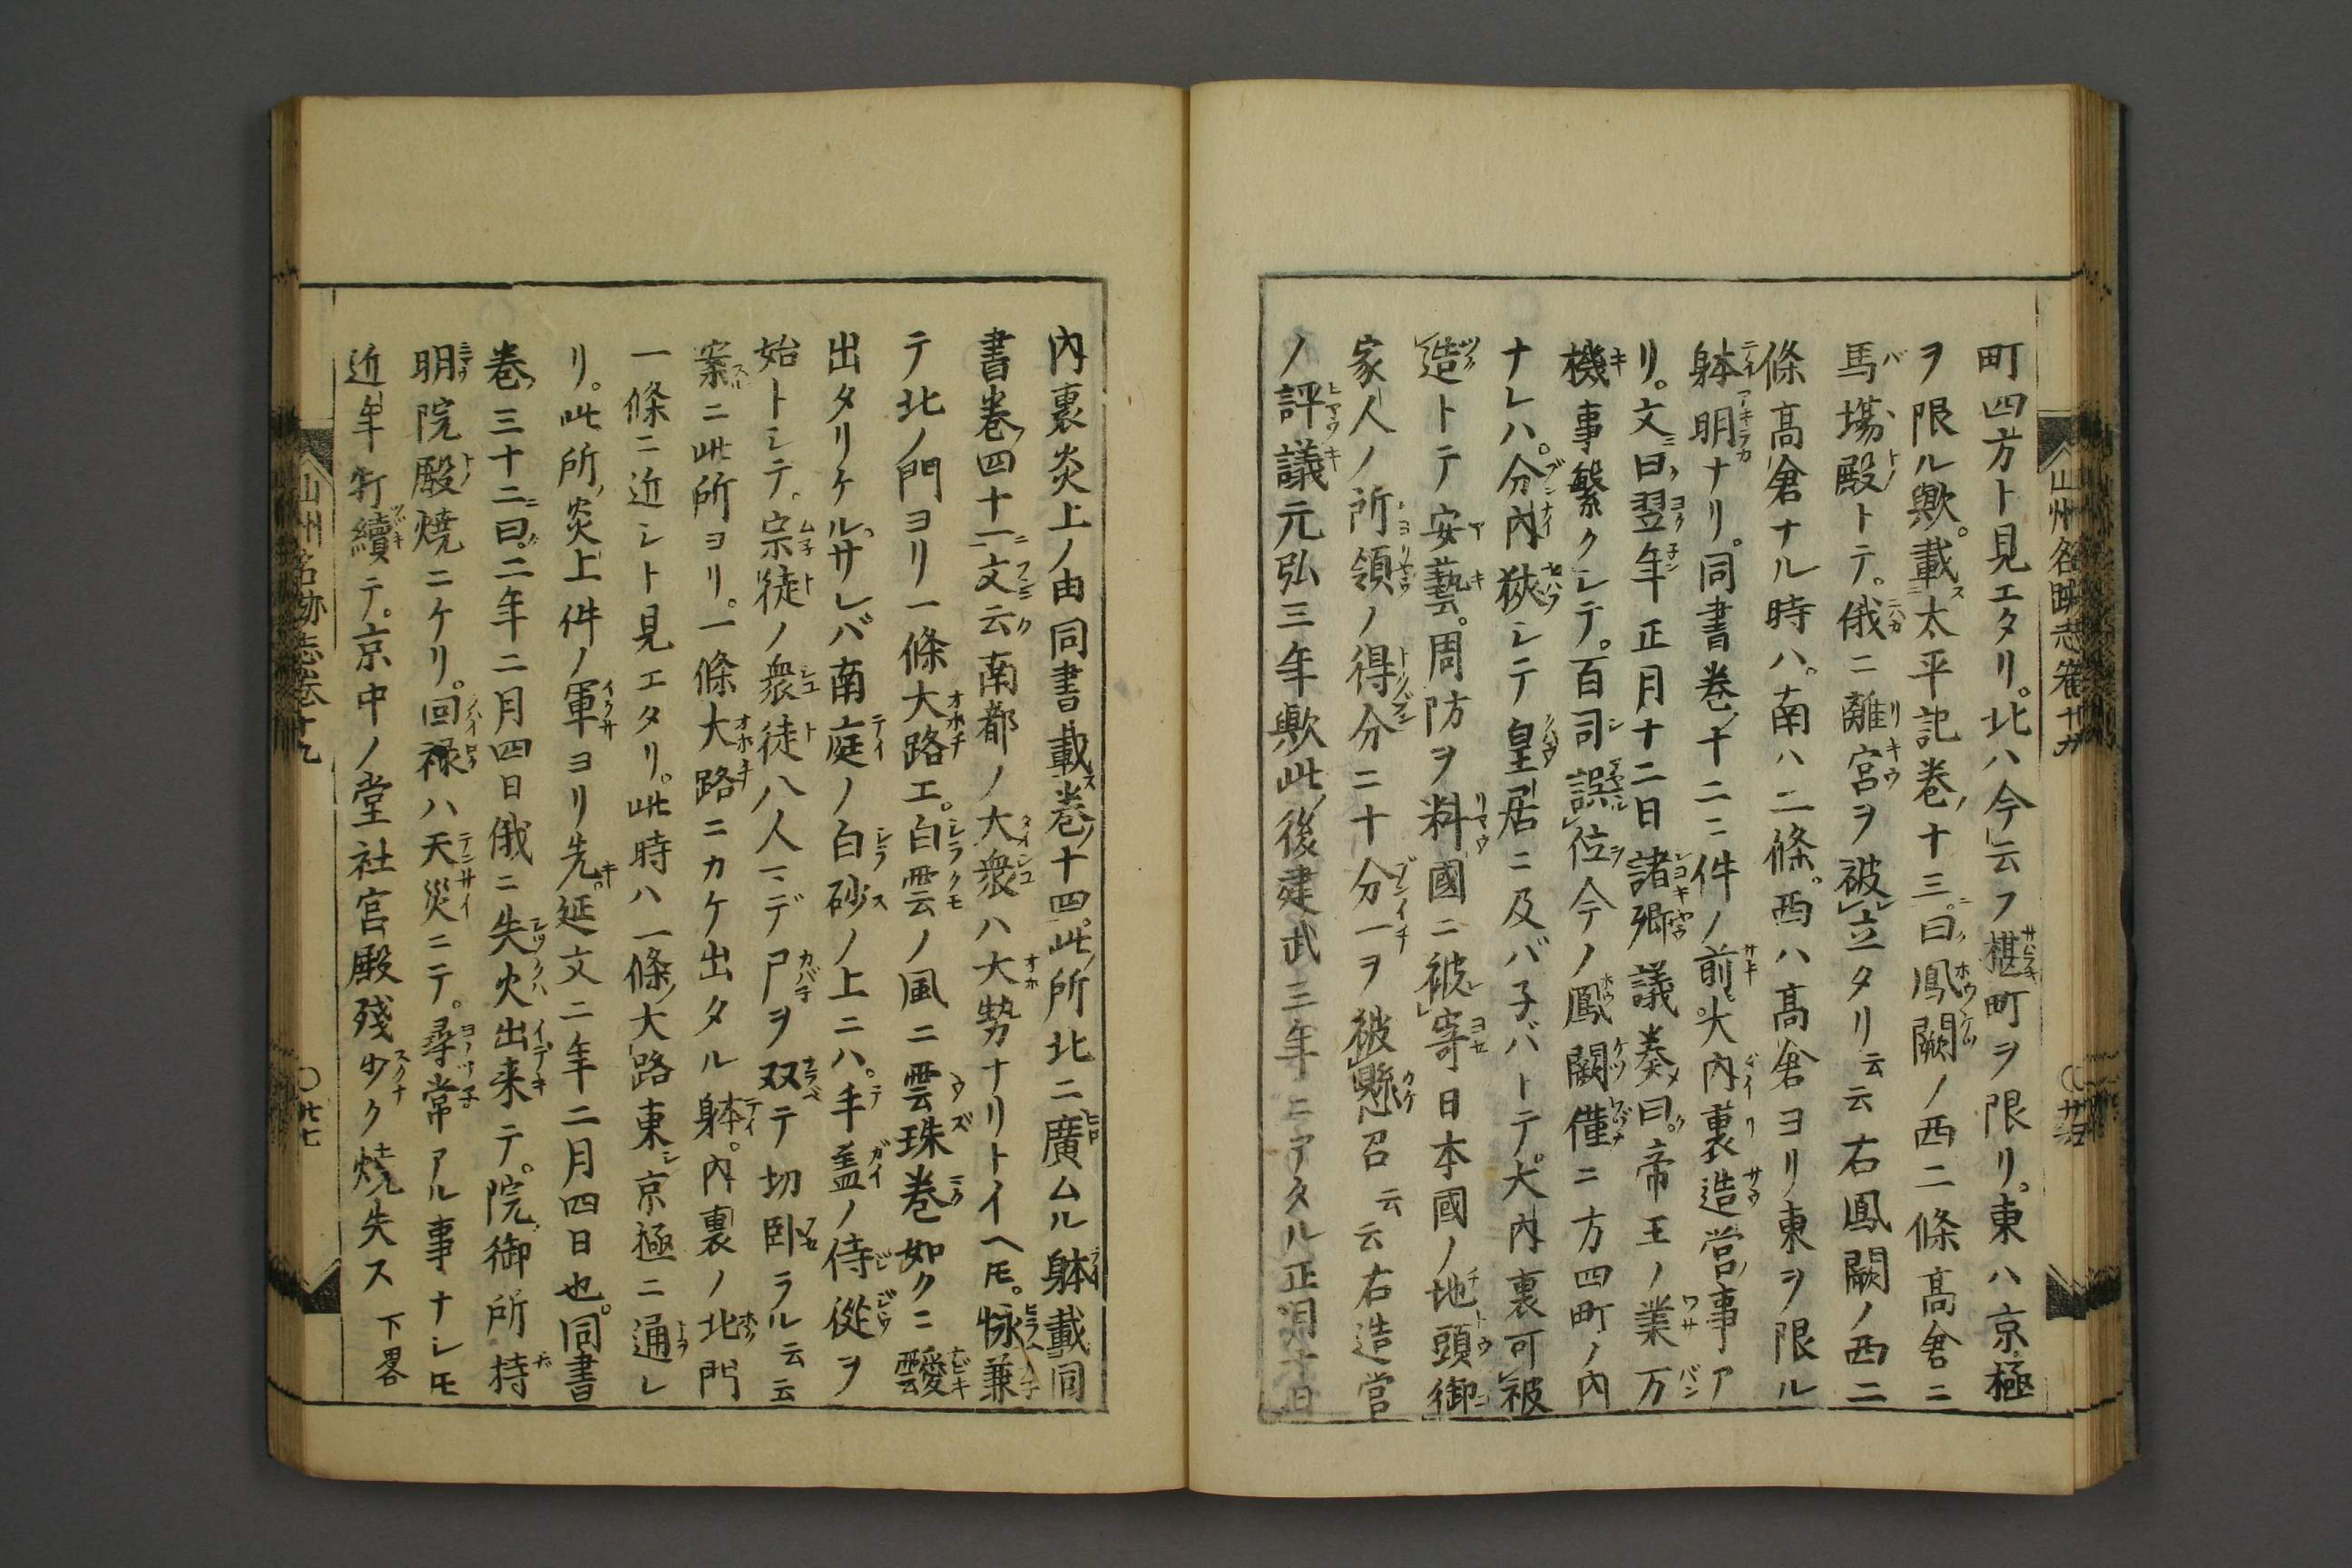 町四方ト見エタリ。北ハ今云フ椹町ヲ限リ。東ハ京極
ヲ限ル歟。載太平記巻十三曰。鳳闕ノ西二條髙倉ニ
馬場殿トテ。俄ニ離宮ヲ被立タリ云云右鳳闕ノ西二
條髙倉ナル時ハ。南ハ二條。西ハ髙倉ヨリ東ヲ限ル
躰明ナリ。同書巻十二ニ件ノ前大内裏造営事ア
リ。文曰翌年正月十二日諸卿議奏曰。帝王ノ業万
機事繁クシテ。百司設位今ノ鳳闕僅ニ方四町ノ内
ナレハ。分内狹シテ皇居ニ及バ子バトテ。大内裏可被
造トテ安藝。周防ヲ料國ニ被寄日本國ノ地頭御
家人ノ所領ノ得分ニ十分一ヲ被懸召云云右造営
ノ評議元弘三年歟此後建武三年ニアタル正月十日
山州名跡志巻十九
○廿七
内裏炎上ノ由同書載巻十四。此所北ニ廣ムル躰載同
書巻四十一文云南都ノ大衆ハ大勢ナリトイヘ𪜈。怺兼
テ北ノ門ヨリ一條大路エ。白雲ノ風ニ雲珠巻如クニ靉
出タリケル。サレバ南庭ノ白砂ノ上ニハ。手蓋ノ侍從ヲ
始トシテ。宗徒ノ衆徒八人マデ尸ヲ双テ切臥ラル云云
案ニ此所ヨリ。一條大路ニカケ出タル躰。内裏ノ北門
一條ニ近シト見エタリ。此時ハ一條大路東京極ニ通シ
リ。此所炎上件ノ軍ヨリ先。延文二年二月四日也。同書
巻三十二曰。二年二月四日俄ニ失火出来テ。院御所持
明院殿焼ニケリ。回禄ハ天災ニテ。尋常アル事ナレ𪜈
近年打續テ。京中ノ堂社宮殿殘少ク焼失ス 下畧
山州名跡志巻十九